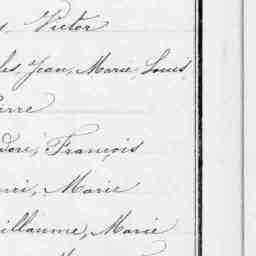 Victor
les, Jean, Marie, Louis
ierre
dore, François
enri, Marie
uillaume, Marie